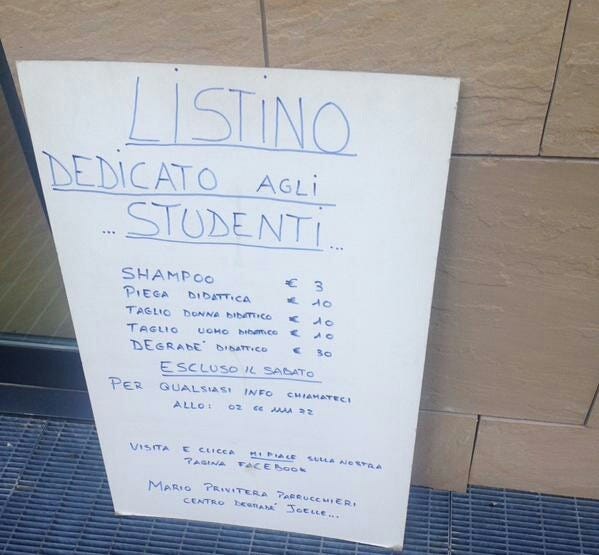 LISTINO
DEDICATO AGLI
... STUDENTI ...
SHAMPOO € 3
PIEGA DIDATTICA € 10
TAGLIO DONNA DIDATTICO € 10
TAGLIO UOMO DIDATTICO € 10
DEGRADE' DIDATTICO € 30
ESCLUSO IL SABATO
PER QUALSIASI INFO CHIAMATECI
ALLO: 02 66 1111 72
VISITA E CLICCA MI PIACE SULLA NOSTRA
PAGINA FACEBOOK
MARIO PRIVITERA PARRUCCHIERI
CENTRO DEGRADE' JOELLE...